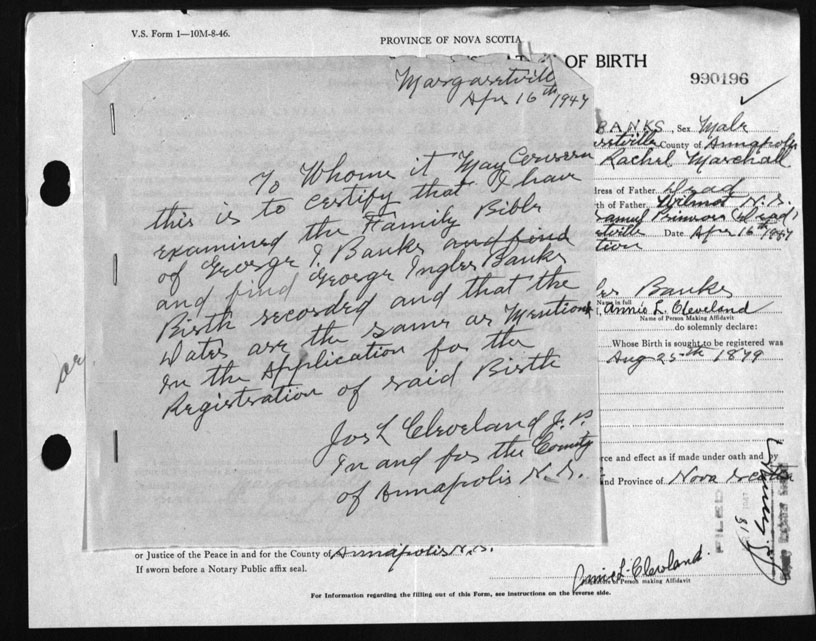 V.S. Form 1—10M-8-46.
PROVINCE OF NOVA SCOTIA
OF BIRTH
990196
Margaretville
Apr 16th 1947
To Whome it May Concern
this is to certify that I have
examined the Family Bible
of George I. Banks and find
and find George Ingles Banks
Birth recorded and that the
Dates are the same as Mentioned
in the Application for the
Registration of said Birth
Jos L Cleveland J. P.
In and for the County
of Annapolis N. S.
BANKS, Sex Male
County of Annapolis
Rachel Marchall
dress of Father Dead
th of Father Wilmot N.S.
Date Apr 16th 1947
tion
Banks
Name in full
Annie L. Cleveland
Name of Person Making Affidavit
do solemnly declare:
Whose Birth is sought to be registered was
Aug 25th 1879
rce and effect as if made under oath and by
nd Province of Nova Scotia
FILED
or Justice of the Peace in and for the County of Annapolis N.S.
If sworn before a Notary Public affix seal.
Annie L. Cleveland.
of Person making Affidavit
For Information regarding the filling out of this Form, see instructions on the reverse side.